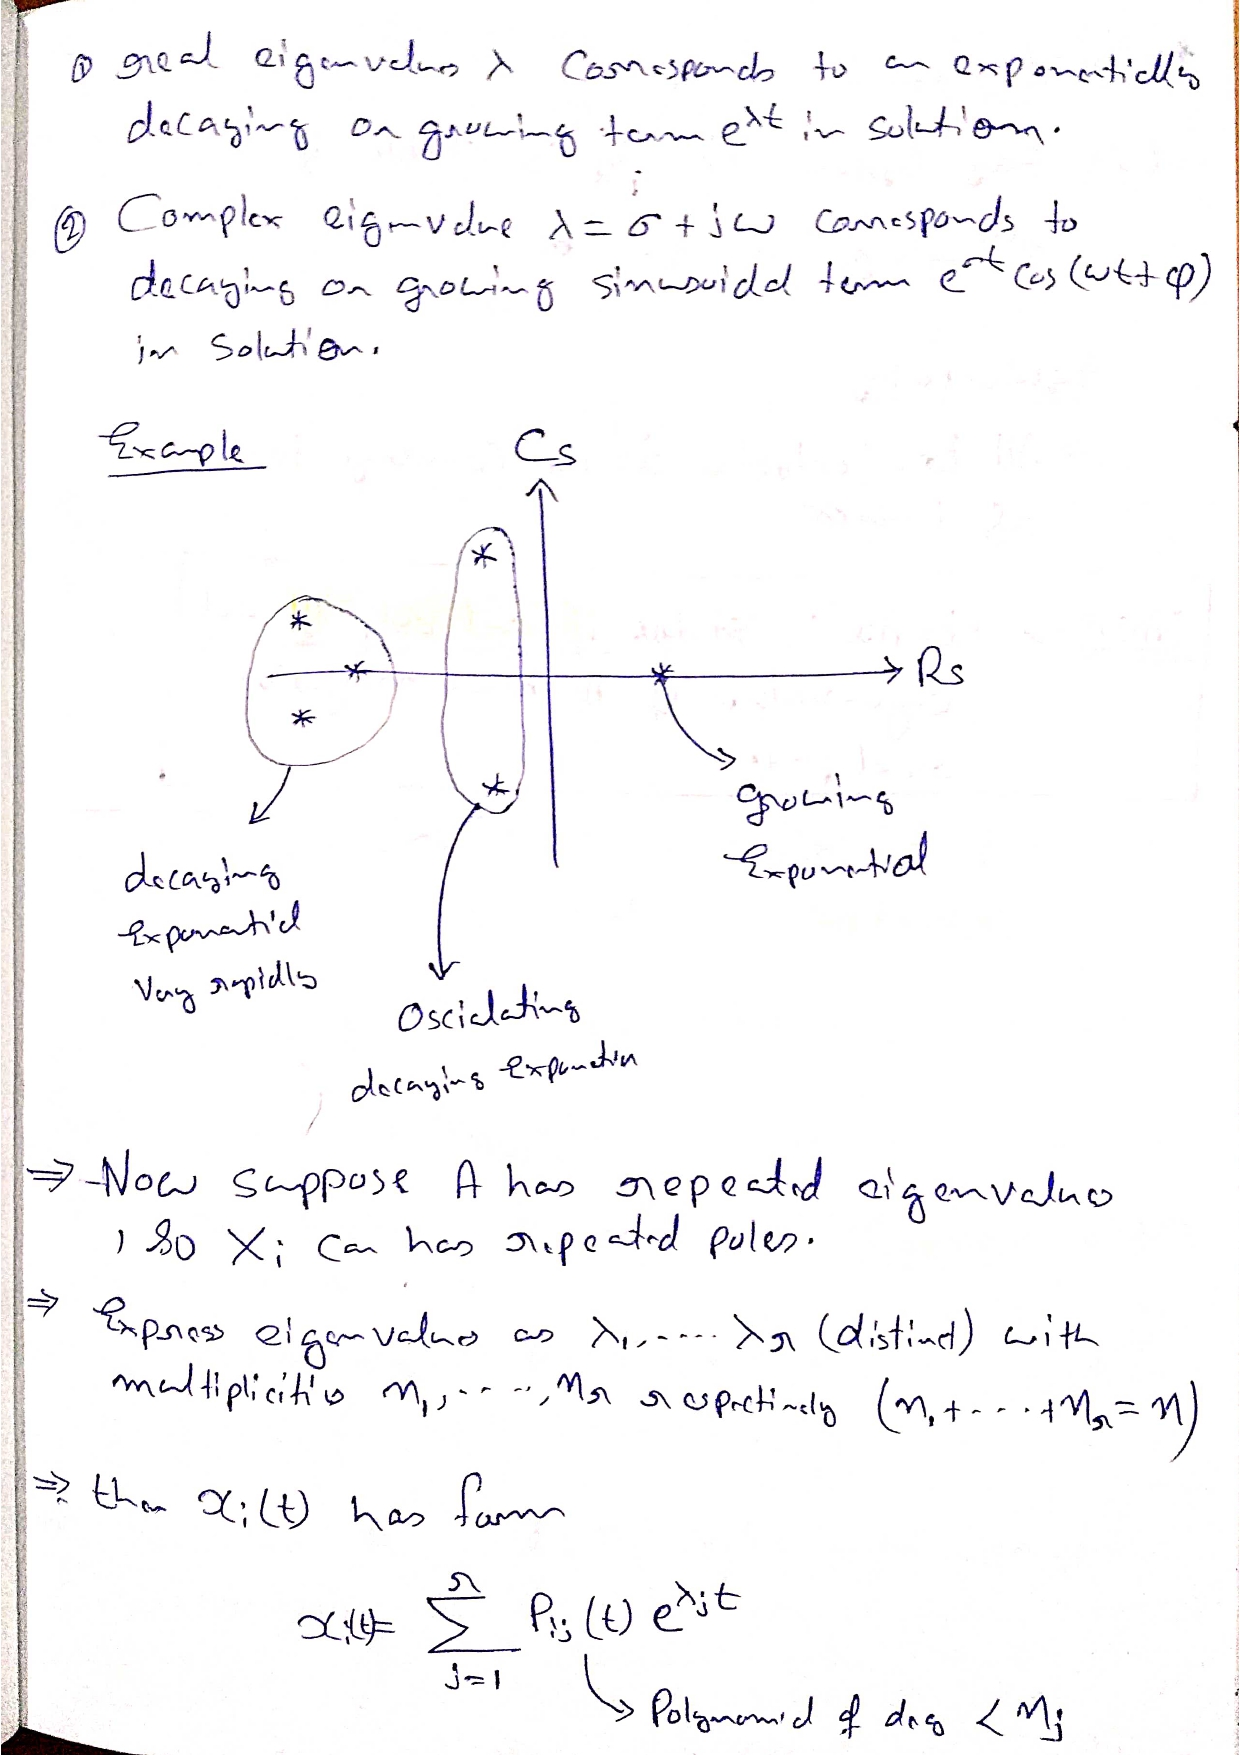 ① real eigenvalues λ corresponds to an exponentially
decaying or growing term e^λt in solution.
② Complex eigenvalue λ = σ + jω corresponds to
decaying or growing sinusoidal term e^σt cos(ωt+φ)
in solution.
Example
Cs
Rs
growing
Exponential
decaying
Exponential
very rapidly
Oscillating
decaying exponential
⇒ Now suppose A has repeated eigenvalues
, so Xi can has repeated poles.
⇒ Express eigenvalues as λ1, .... λr (distinct) with
multiplicities n1, ...., nr respectively (n1 + .... + nr = n)
⇒ then xi(t) has form
xi(t) = Σ_{j=1}^{r} Pij(t) e^λjt
Polynomial of deg < nj